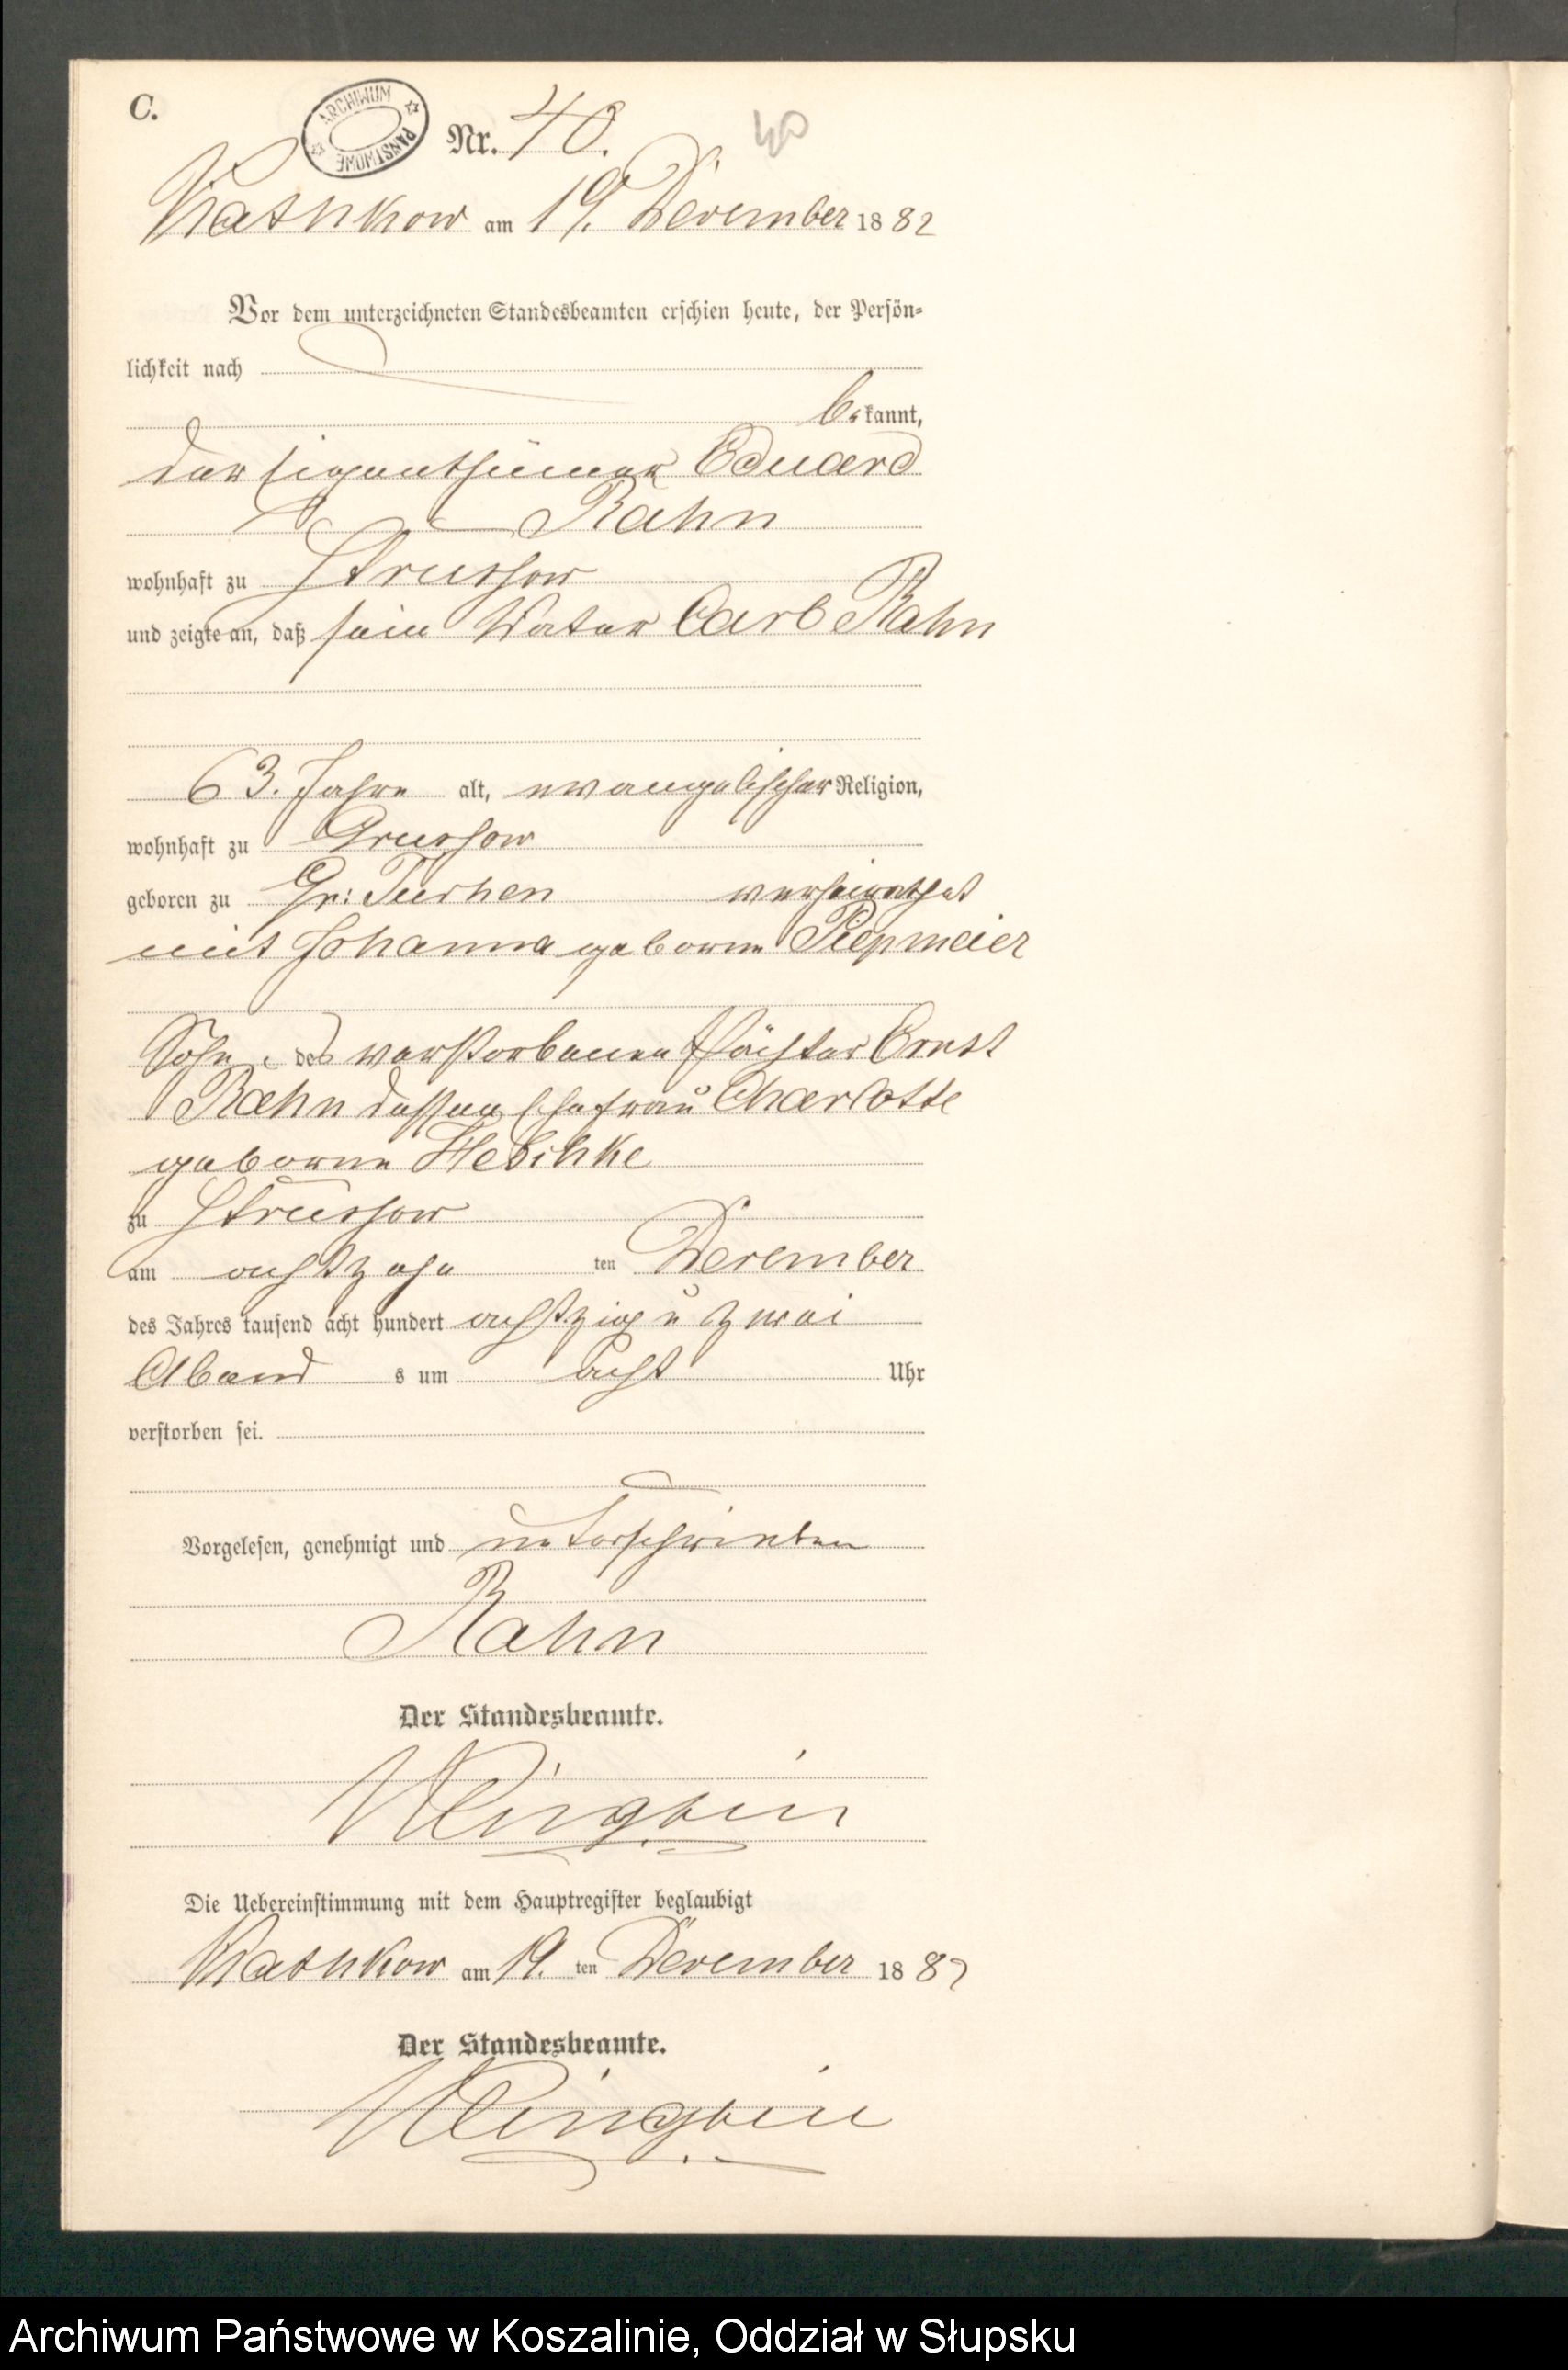 C.
ARCHIWUM PAŃSTWOWE
Nr. 40.
40
am 19. December 1882
Vor dem unterzeichneten Standesbeamten erschien heute, der Persön-
lichkeit nach
be kannt,
der Eigenthümer Eduard
Rahn
wohnhaft zu Strussow
und zeigte an, daß sein Vater Carl Rahn
63. Jahre alt, evangelischer Religion,
wohnhaft zu
geboren zu Gr: Tuchen verheirathet
mit Johanna geborne Piepmeier
Sohn des verstorbenen Pächter Ernst
Rahn dessen Ehefrau Charlotte
geborne
zu Strussow
am achtzehn ten December
des Jahres tausend acht hundert achtzig u zwei
Abend s um acht Uhr
verstorben sei.
Vorgelesen, genehmigt und unterschrieben
Rahn
Der Standesbeamte.
Die Uebereinstimmung mit dem Hauptregister beglaubigt
am 19. ten December 1882
Der Standesbeamte.
Archiwum Państwowe w Koszalinie, Oddział w Słupsku